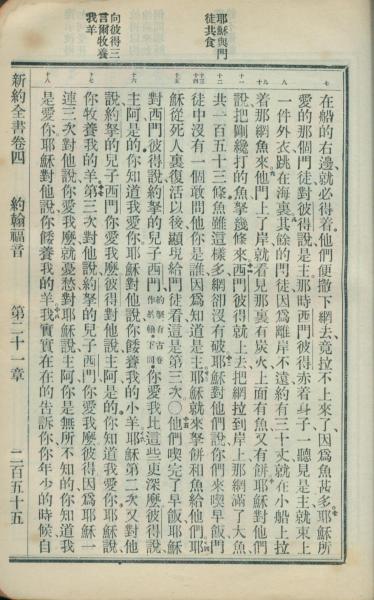 耶穌與門
徒共食
向彼得三
言爾牧養
我羊
七
八
十九
十一
十二
十三十四
十五
十六
十七
十八
在船的右邊、就必得着他們便撒下網去竟拉不上來了因爲魚甚多耶穌所
愛的那個門徒對彼得說是主那時西門彼得赤着身子一聽見是主就束上
一件外衣跳在海裏其餘的門徒因爲離岸不遠約有三十丈就在小船上拉
着那網魚來他們上了岸就看見那裏有炭火上面有魚又有餅耶穌對他們
說把剛纔打的魚拏幾條來西門彼得就上去把網拉到岸上那網滿了大魚
共一百五十三條魚雖這樣多網卻沒有破耶穌對他們說你們來喫早飯門
徒中沒有一個敢問他你是誰因爲知道是主耶穌就來拏餅和魚給他們耶
穌從死人裏復活以後顯現給門徒看這是第三次○他們喫完了早飯耶穌
對西門彼得說約拏的兒子西門約拏有古卷作約翰下同你愛我比這些更深麽彼得說
主阿是的你知道我愛你耶穌對他說你餧養我的小羊耶穌第二次又對他
說約拏的兒子西門你愛我麽彼得對他說主阿是的你知道我愛你耶穌說
你牧養我的羊第三次對他說約拏的兒子西門你愛我麽彼得因爲耶穌一
連三次對他說你愛我麽就憂愁對耶穌說主阿你是無所不知的你知道我
是愛你耶穌對他說你餧養我的羊我實實在在的告訴你你年少的時候自
新約全書卷四 約翰福音 第二十一章 二百五十五